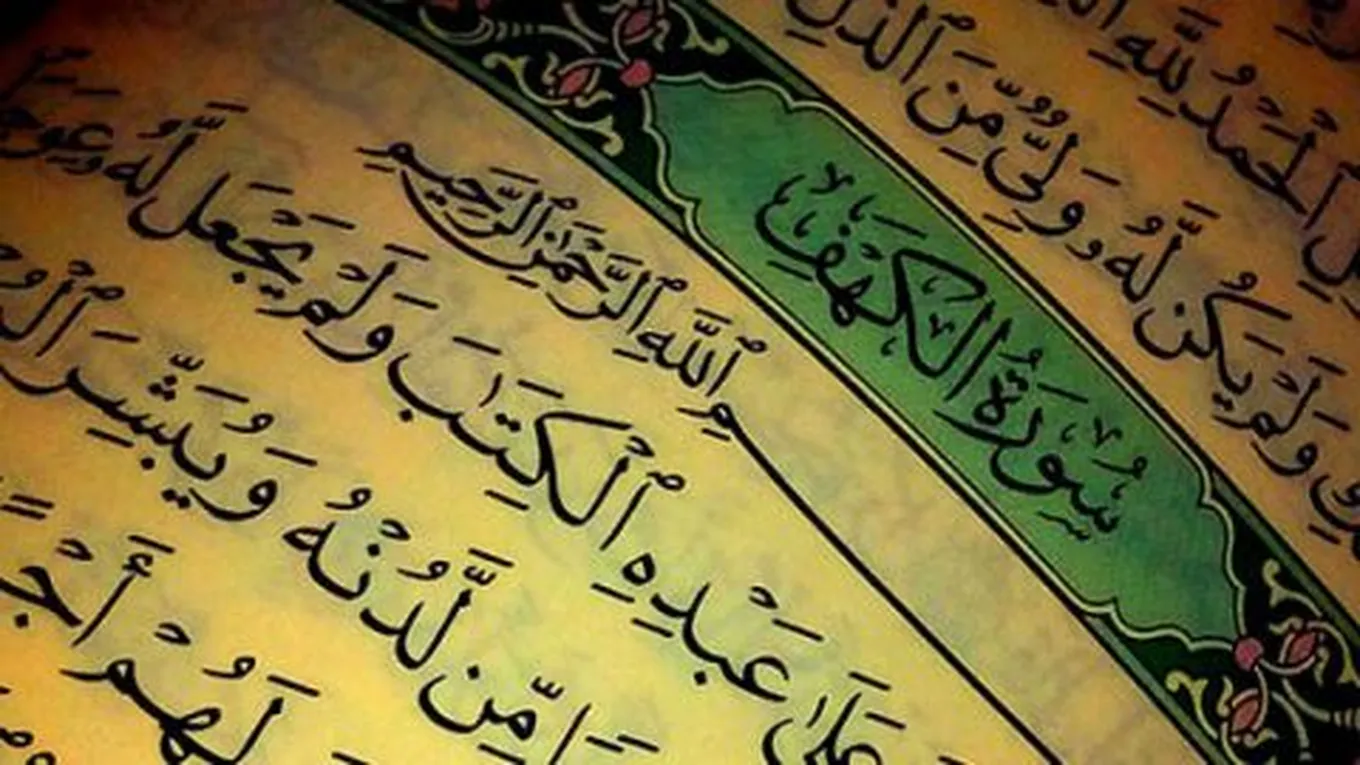 ٱلْحَمْدُ لِلَّهِ
وَلَمْ يَكُن لَّهُۥ وَلِىٌّ مِّنَ ٱلذُّلِّ
سُورَةُ الكَهْفِ
بِسْمِ ٱللَّهِ ٱلرَّحْمَٰنِ ٱلرَّحِيمِ
عَلَىٰ عَبْدِهِ ٱلْكِتَٰبَ وَلَمْ يَجْعَل لَّهُۥ عِوَجَا
مِّن لَّدُنْهُ وَيُبَشِّرَ
لَهُمْ أَجْرًا